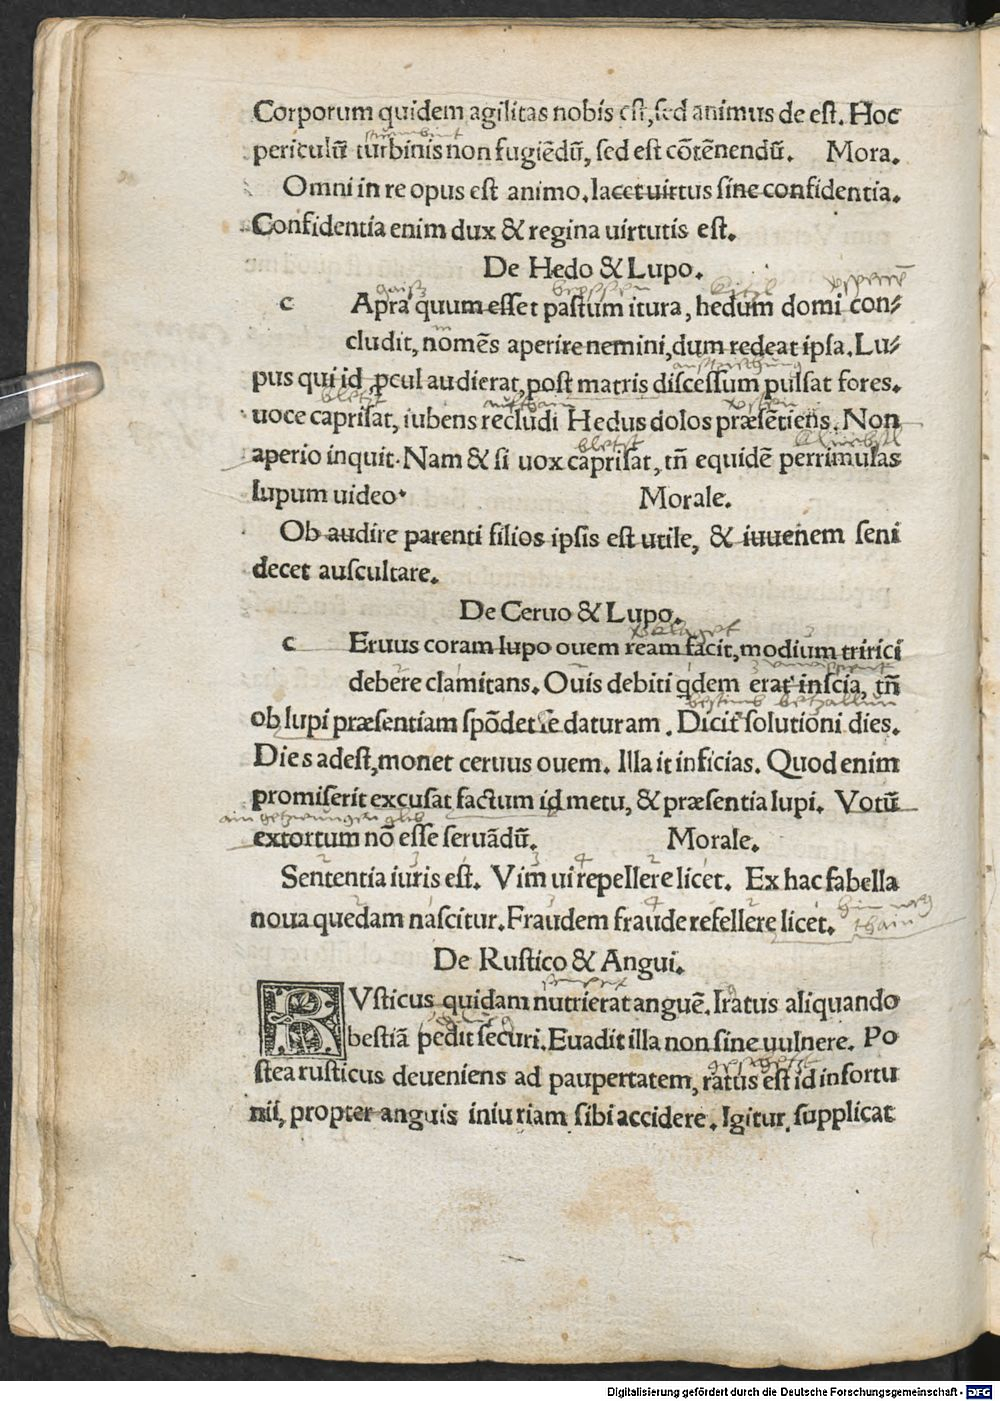 Corporum quidem agilitas nobis est, sed animus de est. Hoc
periculū turbinis non fugiēdū, sed est cōtēnendū. Mora.
Omni in re opus est animo. Iacet uirtus sine confidentia.
Confidentia enim dux & regina uirtutis est.
De Hedo & Lupo.
c Apra quum esset pastum itura, hedum domi con⸗
cludit, nomēs aperire nemini, dum redeat ipsa. Lu⸗
pus qui id ꝓcul audierat, post matris discessum pulsat fores.
uoce caprisat, iubens recludi Hedus dolos præsētiens. Non
aperio inquit. Nam & si uox caprisat, tñ equidē perrimulas
lupum uideo. Morale.
Ob audire parenti filios ipsis est utile, & iuuenem seni
decet auscultare.
De Ceruo & Lupo.
c Eruus coram lupo ouem ream facit, modium tritici
debere clamitans. Ouis debiti qdem erat inscia, tñ
ob lupi præsentiam spōdet se daturam. Dicit solutioni dies.
Dies adest, monet ceruus ouem. Illa it inficias. Quod enim
promiserit excusat factum id metu, & præsentia lupi. Votū
extortum nō esse seruādū. Morale.
Sententia iuris est. Vim ui repellere licet. Ex hac fabella
noua quedam nascitur. Fraudem fraude refellere licet.
De Rustico & Angui.
RVsticus quidam nutrierat anguē. Iratus aliquando
bestiā pedit securi. Euadit illa non sine uulnere. Po
stea rusticus deueniens ad paupertatem, ratus est id infortu
nii, propter anguis iniuriam sibi accidere. Igitur supplicat
Digitalisierung gefördert durch die Deutsche Forschungsgemeinschaft - DFG